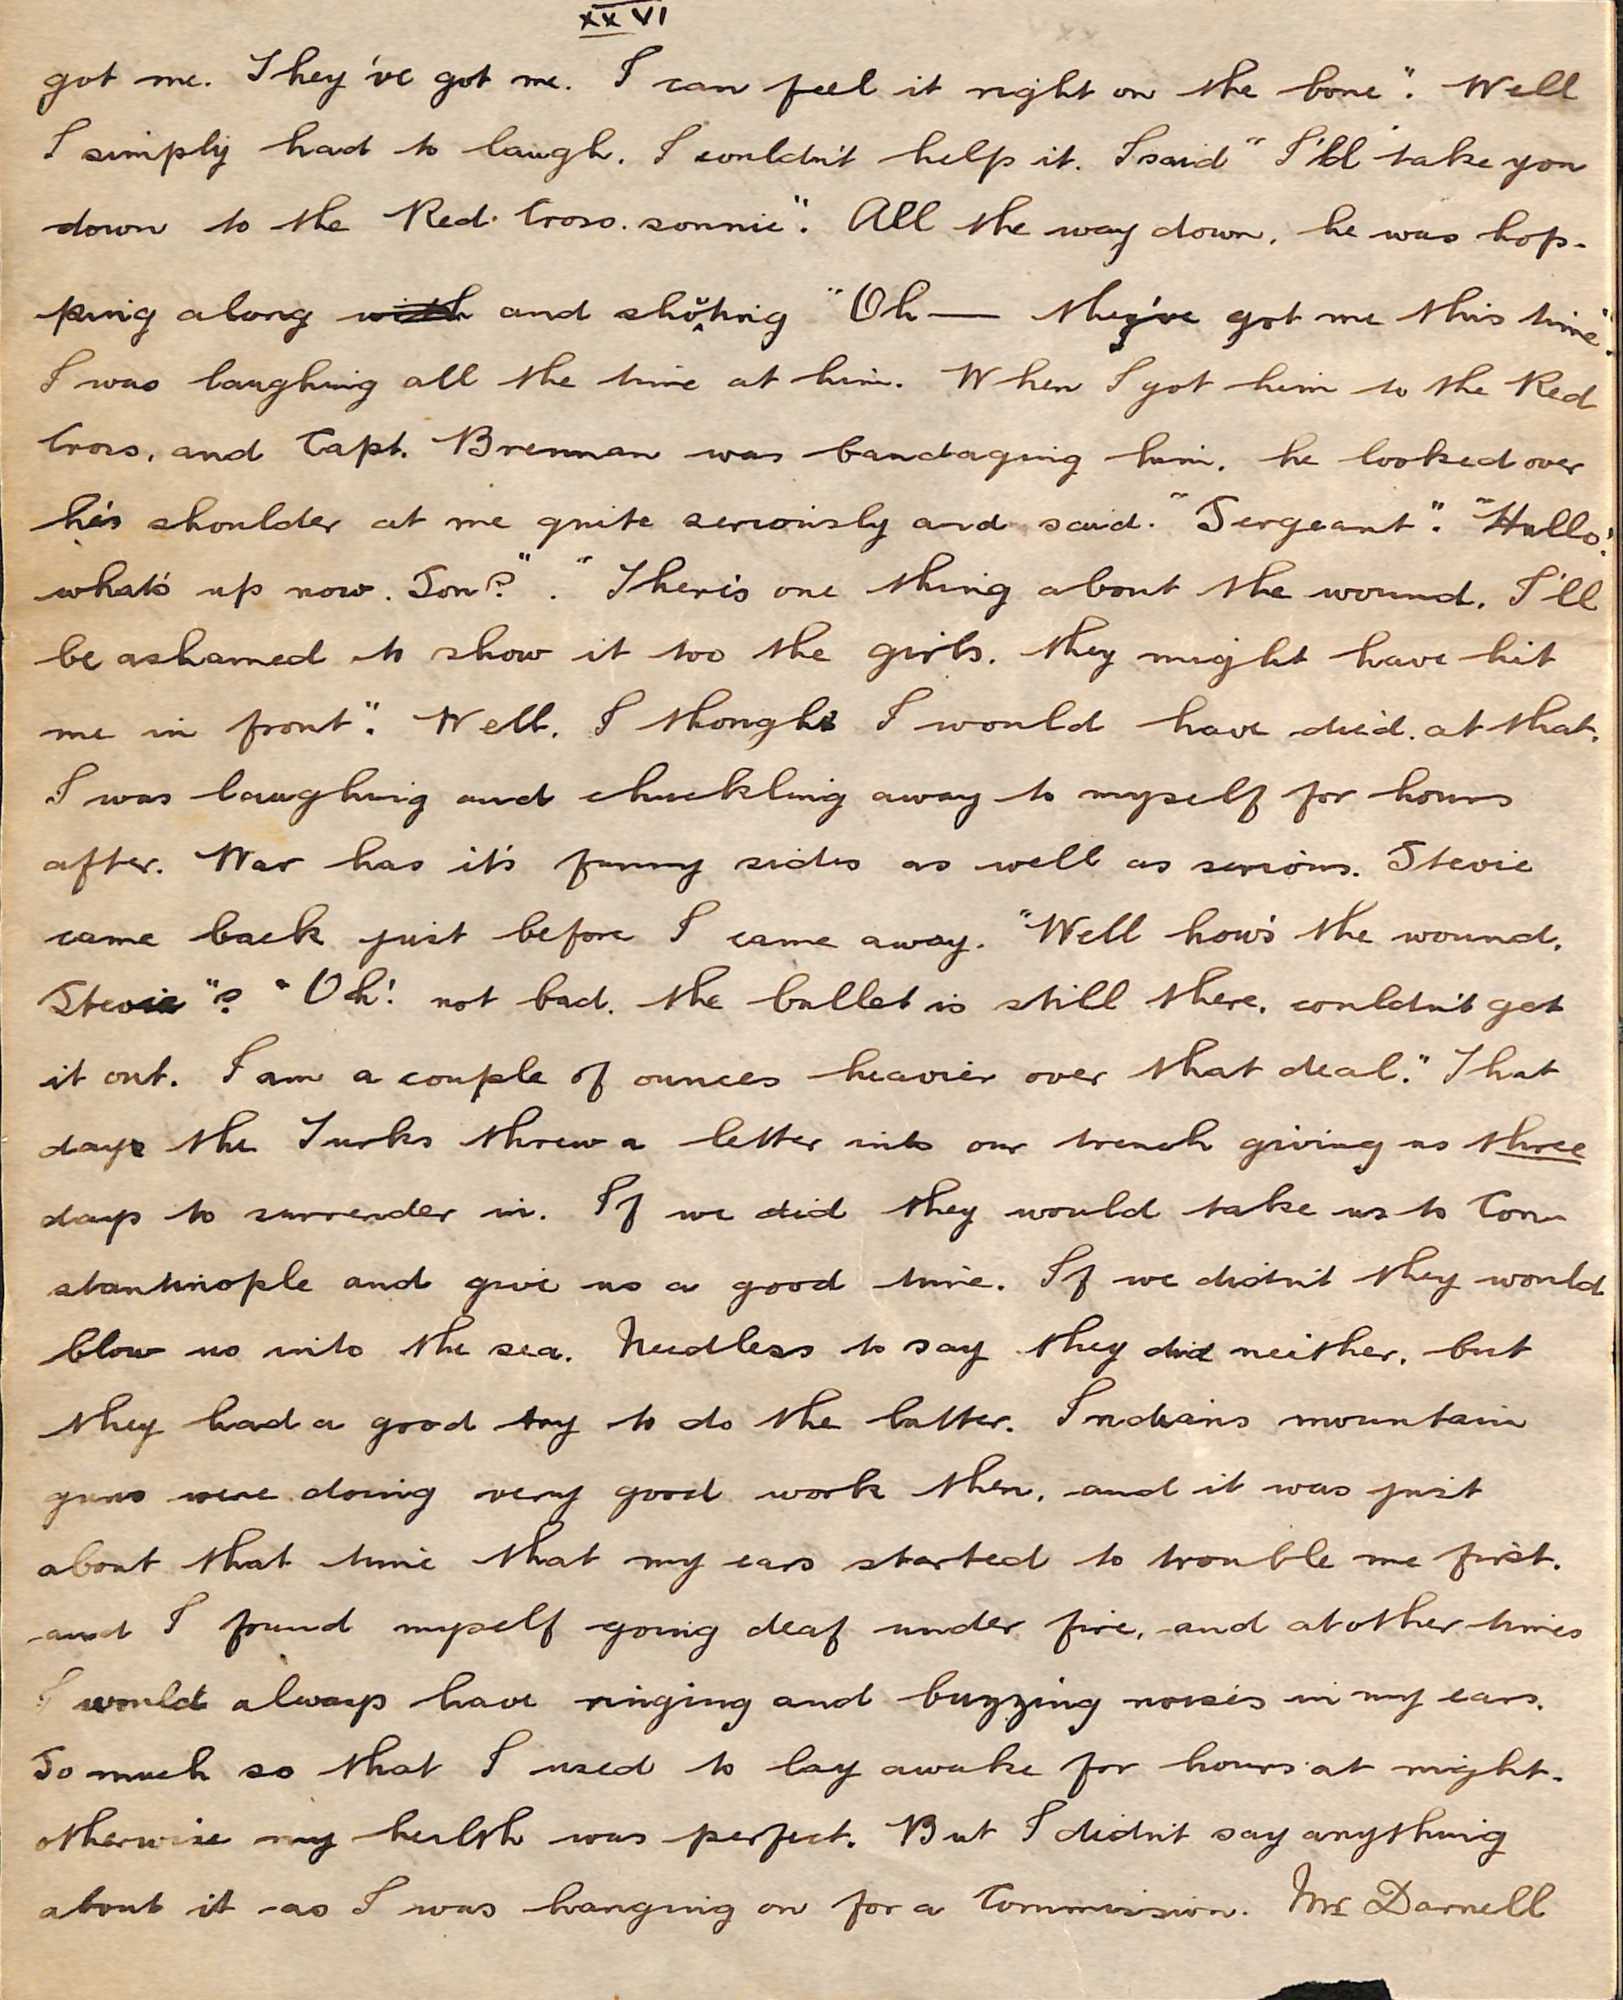 XXVI
got me. They've got me. I can feel it right on the bone". Well
I simply had to laugh. I couldn't help it. I said "I'll take you
down to the Red. Cross. sonnie". All the way down, he was hop-
ping along with and shouting "Oh — they've got me this time".
I was laughing all the time at him. When I got him to the Red
Cross, and Capt. Brennan was bandaging him, he looked over
his shoulder at me quite seriously and said. "Sergeant". "Hullo!
what's up now. Son?". "There's one thing about the wound, I'll
be ashamed to show it too the girls. they might have hit
me in front". Well, I thought I would have died. at that.
I was laughing and chuckling away to myself for hours
after. War has it's funny sides as well as serious. Stevie
came back just before I came away. "Well how's the wound,
Stevie"? "Oh! not bad. the bullet is still there, couldn't get
it out. I am a couple of ounces heavier over that deal." That
day the Turks threw a letter into our trench giving us three
days to surrender in. If we did they would take us to Con-
stantinople and give us a good time. If we didn't they would
blow us into the sea. Needless to say they did neither, but
they had a good try to do the latter. Indians mountain
guns were doing very good work then, and it was just
about that time that my ears started to trouble me first.
and I found myself going deaf under fire, and at other times
I would always have ringing and buzzing noises in my ears.
So much so that I used to lay awake for hours at night.
otherwise my health was perfect. But I didn't say anything
about it as I was hanging on for a Commission. Mr Darnell